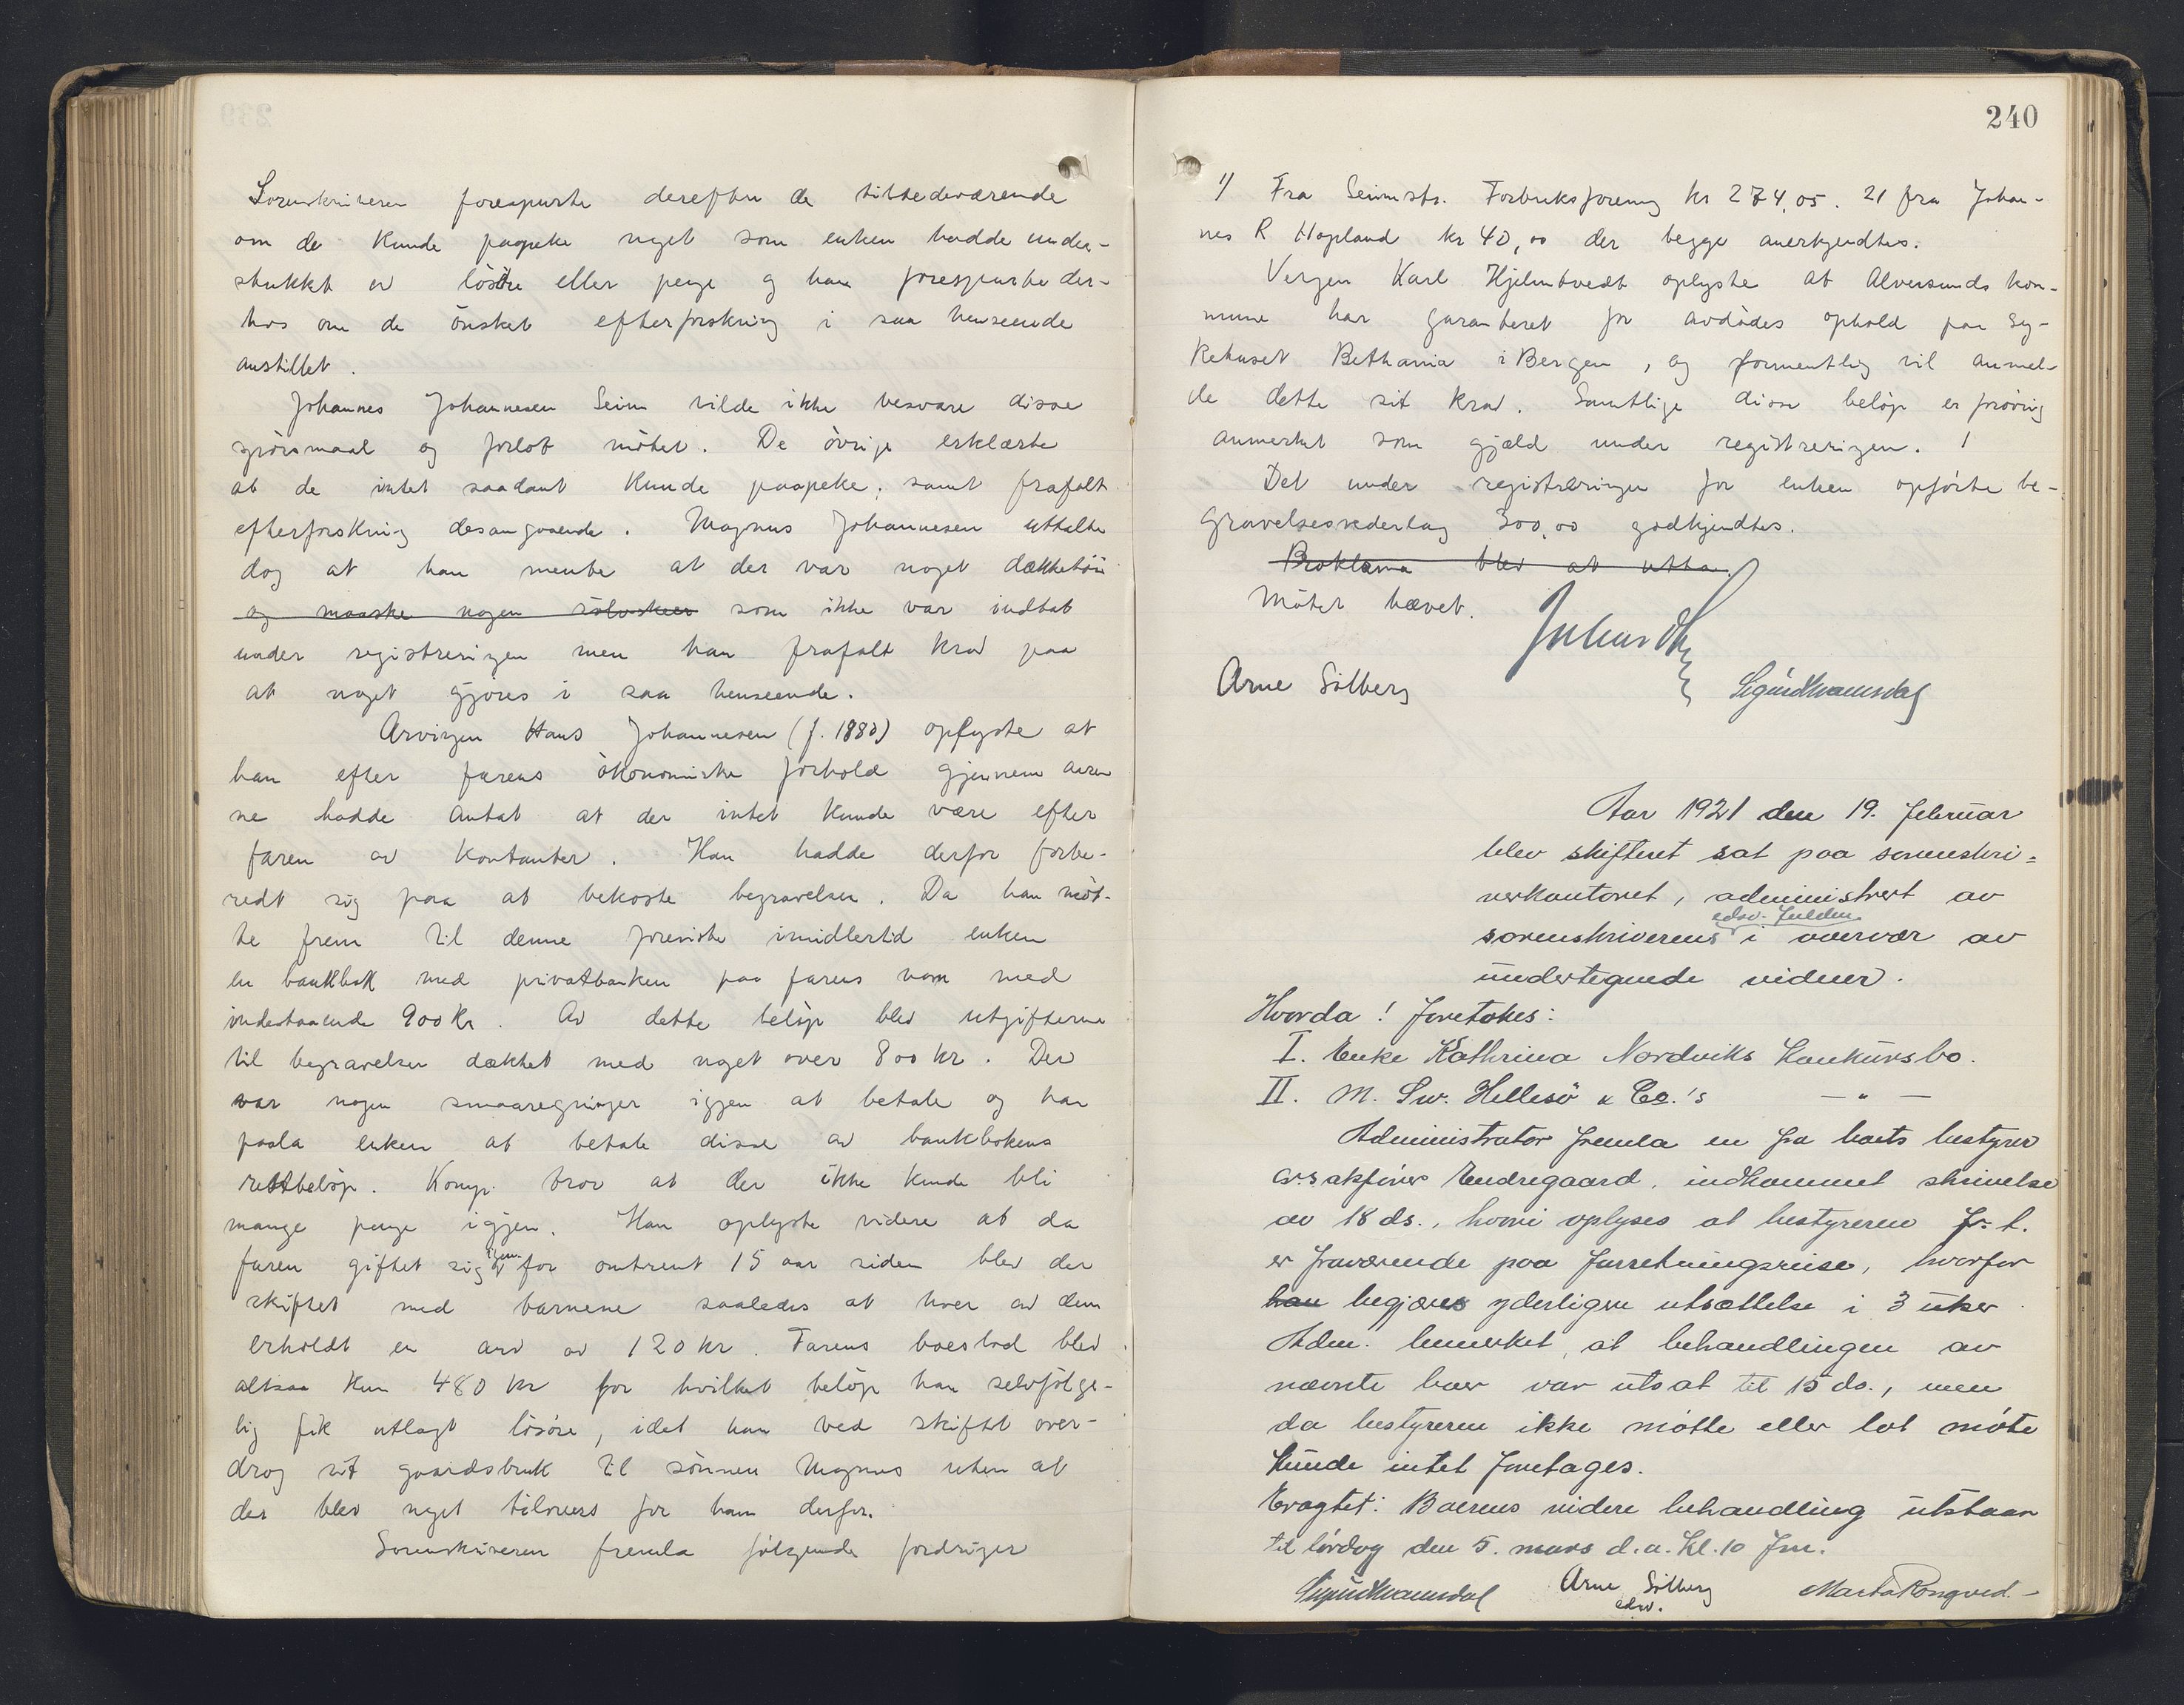 Sorenskriveren forespurte derefter de tilstedeværende
om de kunde paapeke noget som enken hadde under-
slukket av lösöre eller penge og han forespurte der-
hos om de önsket efterforskning i saa henseende
anstillet.
Johannes Johannesen Seim vilde ikke besvare disse
spörsmaal og forlot mötet. De övrige erklærte
at de intet saadant kunde paapeke, samt frafalt
efterforskning desangaaende. Magnus Johannesen uttalte
dog at han mente at der var noget dækketöi
og maaske nogen sölvskeer som ikke var indtat
under registreringen men han frafalt krav paa
at noget gjöres i saa henseende.
Arvingen Hans Johannesen (f. 1880) oplyste at
han efter farens ökonomiske forhold gjennem aare
ne hadde antat at der intet kunde være efter
faren av kontanter. Han hadde derfor forbe-
redt sig paa at bekoste begravelsen. Da han möt-
te frem til denne foreviste imidlertid enken
en bankbok med privatbanken paa farens navn med
indestaaende 900 kr. Av dette belöp blev utgifterne
til begravelsen dækket med noget over 800 kr. Der
var nogen smaaregninger igjen at betale og han
paala enken at betale disse av bankbokens
restbelöp. Komp. tror at der ikke kunde bli
mange penge igjen. Han oplyste videre at da
faren giftet sig igjen for omtrent 15 aar siden blev der
skiftet med barnene saaledes at hver av dem
erholdt en arv av 120 kr. Farens boeslod blev
altsaa kun 480 kr for hvilket belöp han selvfölge-
lig fik utlagt lösöre, idet han ved skiftet over-
drog sit gaardsbruk til sönnen Magnus uten at
der blev noget tilovers for ham derfor.
Sorenskriveren fremla fölgende fordringer
240
1) Fra Seimstr. Forbruksforening kr 274,05. 2) fra Johan-
nes R Hopland kr 40,00 der begge anerkjendtes.
Vergen Karl Hjelmtvedt oplyste at Alversunds kom-
mune har garanteret for avdödes ophold paa Sy-
kehuset Bethania i Bergen, og formentlig vil anmel-
de dette sit krav. Samtlige disse belöp er forövrig
anmerket som gjæld under registreringen. /
Det under registreringen for enken opförte be-
gravelsesvederlag 300,00 godkjendtes.
Proklama blev at utta.
Mötet hævet.
Arne Solberg Sigurd Kvamsdal
Aar 1921 den 19. februar
blev skifteret sat paa sorenskri-
verkontoret, administrert av
edsv. fuldm.
sorenskriverens i overvær av
undertegnede vidner.
Hvorda! foretokes:
I. Enke Kathrina Nordviks konkursbo.
II. M. Sw. Hellesö & Co.'s — " —
Administrator fremla en fra boets bestyrer
o.r.sakförer Endregaard, indkommet skrivelse
av 18 ds., hvori oplyses at bestyreren f. t.
er fraværende paa forretningsreise, hvorfor
han begjæres yderligere utsættelse i 3 uker.
Adm. bemerket, at behandlingen av
nævnte boer var utsat til 15 ds., men
da bestyreren ikke mötte eller lot möte
kunde intet foretages.
Eragtet: Boernes videre behandling utstaar
til lördag den 5. mars d.a. kl. 10 fm.
Sigurd Kvamsdal Arne Solberg Marta Rongved.
edsv.